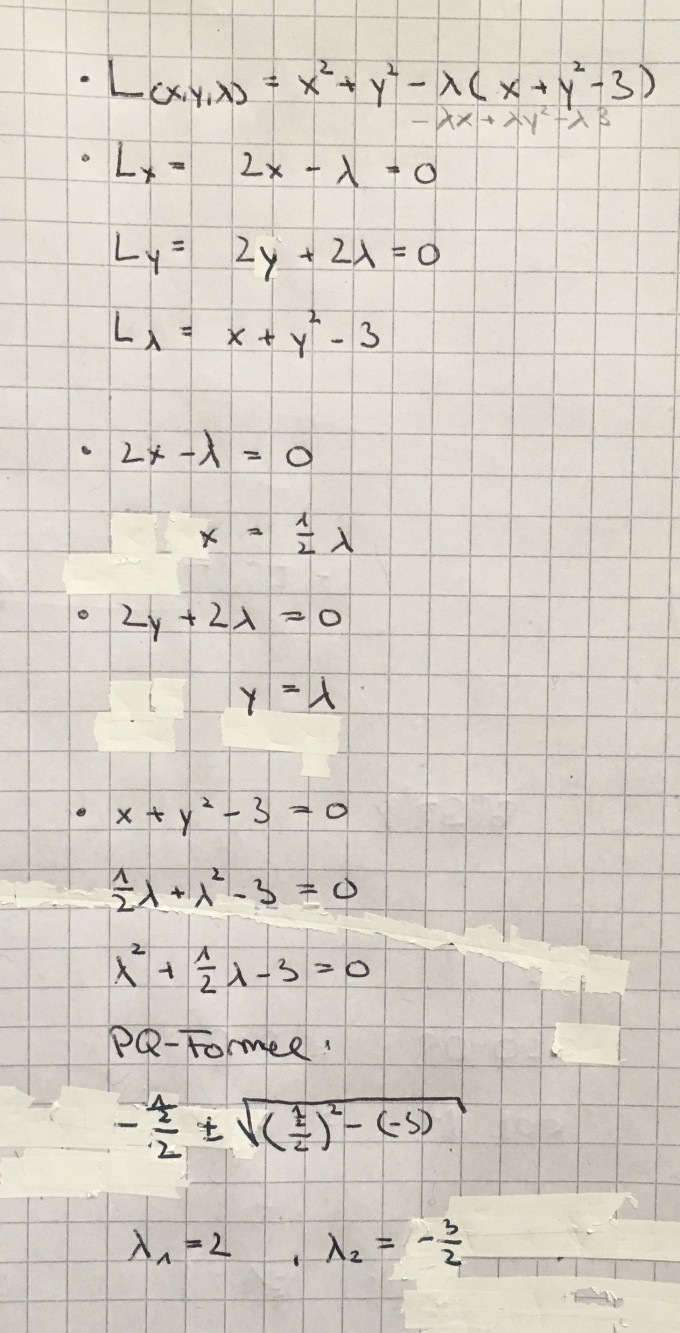 • L(x,y,λ) = x² + y² - λ( x + y² - 3)
- λx + λy² - λ3
• Lx = 2x - λ = 0
Ly = 2y + 2λ = 0
Lλ = x + y² - 3
• 2x - λ = 0
x = 1/2 λ
• 2y + 2λ = 0
y = λ
• x + y² - 3 = 0
1/2 λ + λ² - 3 = 0
λ² + 1/2 λ - 3 = 0
PQ-Formel:
- (1/2)/2 ± √((1/2)/2)² - (-3)
λ₁ = 2 , λ₂ = - 3/2